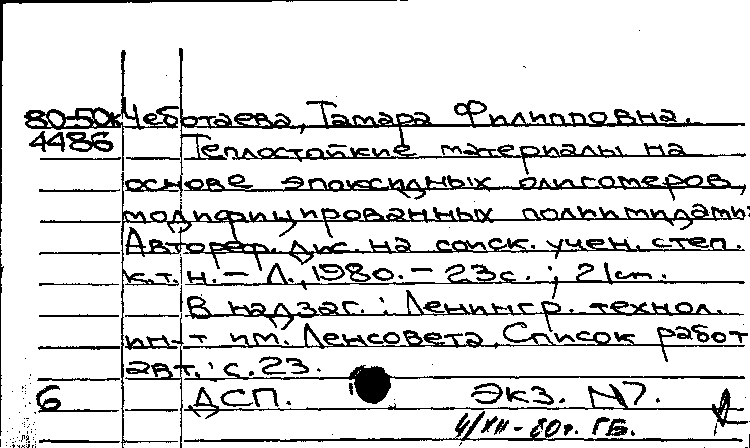 80-50к Чеботаева, Тамара Филипповна.
4486 Теплостойкие материалы на
основе эпоксидных олигомеров,
модифицированных полиимидами:
Автореф. дис. на соиск. учен. степ.
к.т.н. - Л., 1980. - 23с. ; 21 cm.
В надзаг.: Ленингр. технол.
ин-т им. Ленсовета. Список работ
авт.: с. 23.
6 ДСП. Экз. N7.
4/XII-80г. ГБ.